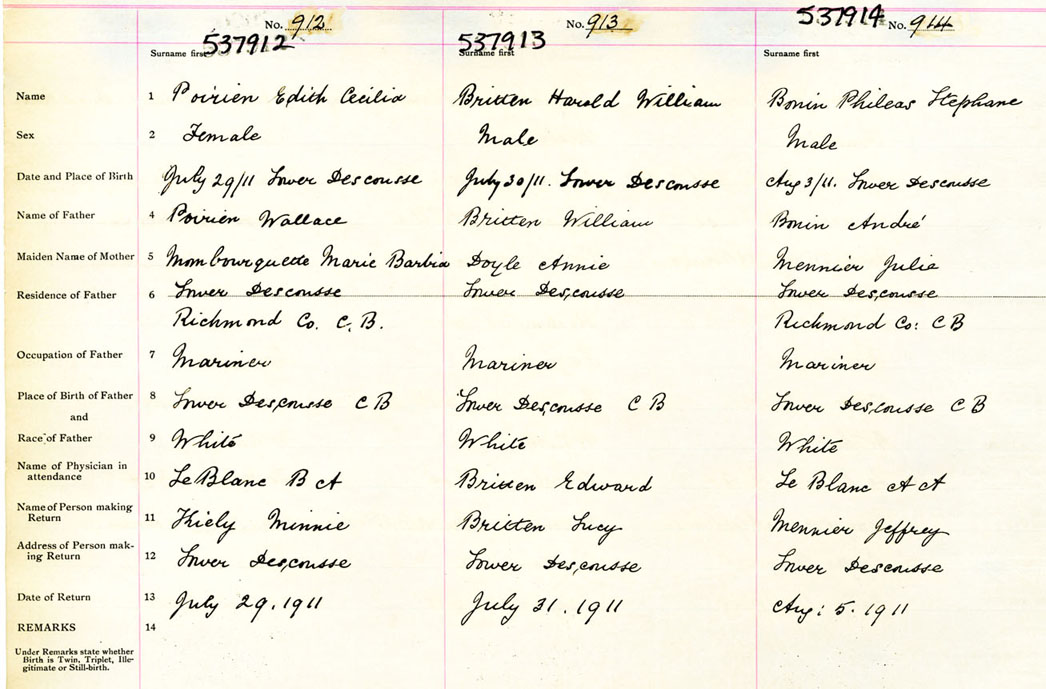 No. 912 No. 913 537914 No. 914
537912 537913
Surname first Surname first Surname first
Name 1 Poirien Edith Cecilia Britten Harold William Bonin Phileas Stephane
Sex 2 Female Male Male
Date and Place of Birth July 29/11 Lower Descousse July 30/11. Lower Descousse Aug 3/11. Lower Descousse
Name of Father 4 Poirien Wallace Britten William Bonin André
Maiden Name of Mother 5 Mombourquette Marie Barbia Doyle Annie Mennier Julie
Residence of Father 6 Lower Descousse Lower Descousse Lower Descousse
Richmond Co. C. B. Richmond Co: C B
Occupation of Father 7 Mariner Mariner Mariner
Place of Birth of Father 8 Lower Descousse C B Lower Descousse C B Lower Descousse C B
and
Race of Father 9 White White White
Name of Physician in
attendance 10 Le Blanc B A Britten Edward Le Blanc A A
Name of Person making
Return 11 Kiely Minnie Britten Lucy Mennier Jeffrey
Address of Person mak-
ing Return 12 Lower Descousse Lower Descousse Lower Descousse
Date of Return 13 July 29. 1911 July 31. 1911 Aug: 5. 1911
REMARKS 14
Under Remarks state whether
Birth is Twin, Triplet, Ille-
gitimate or Still-birth.